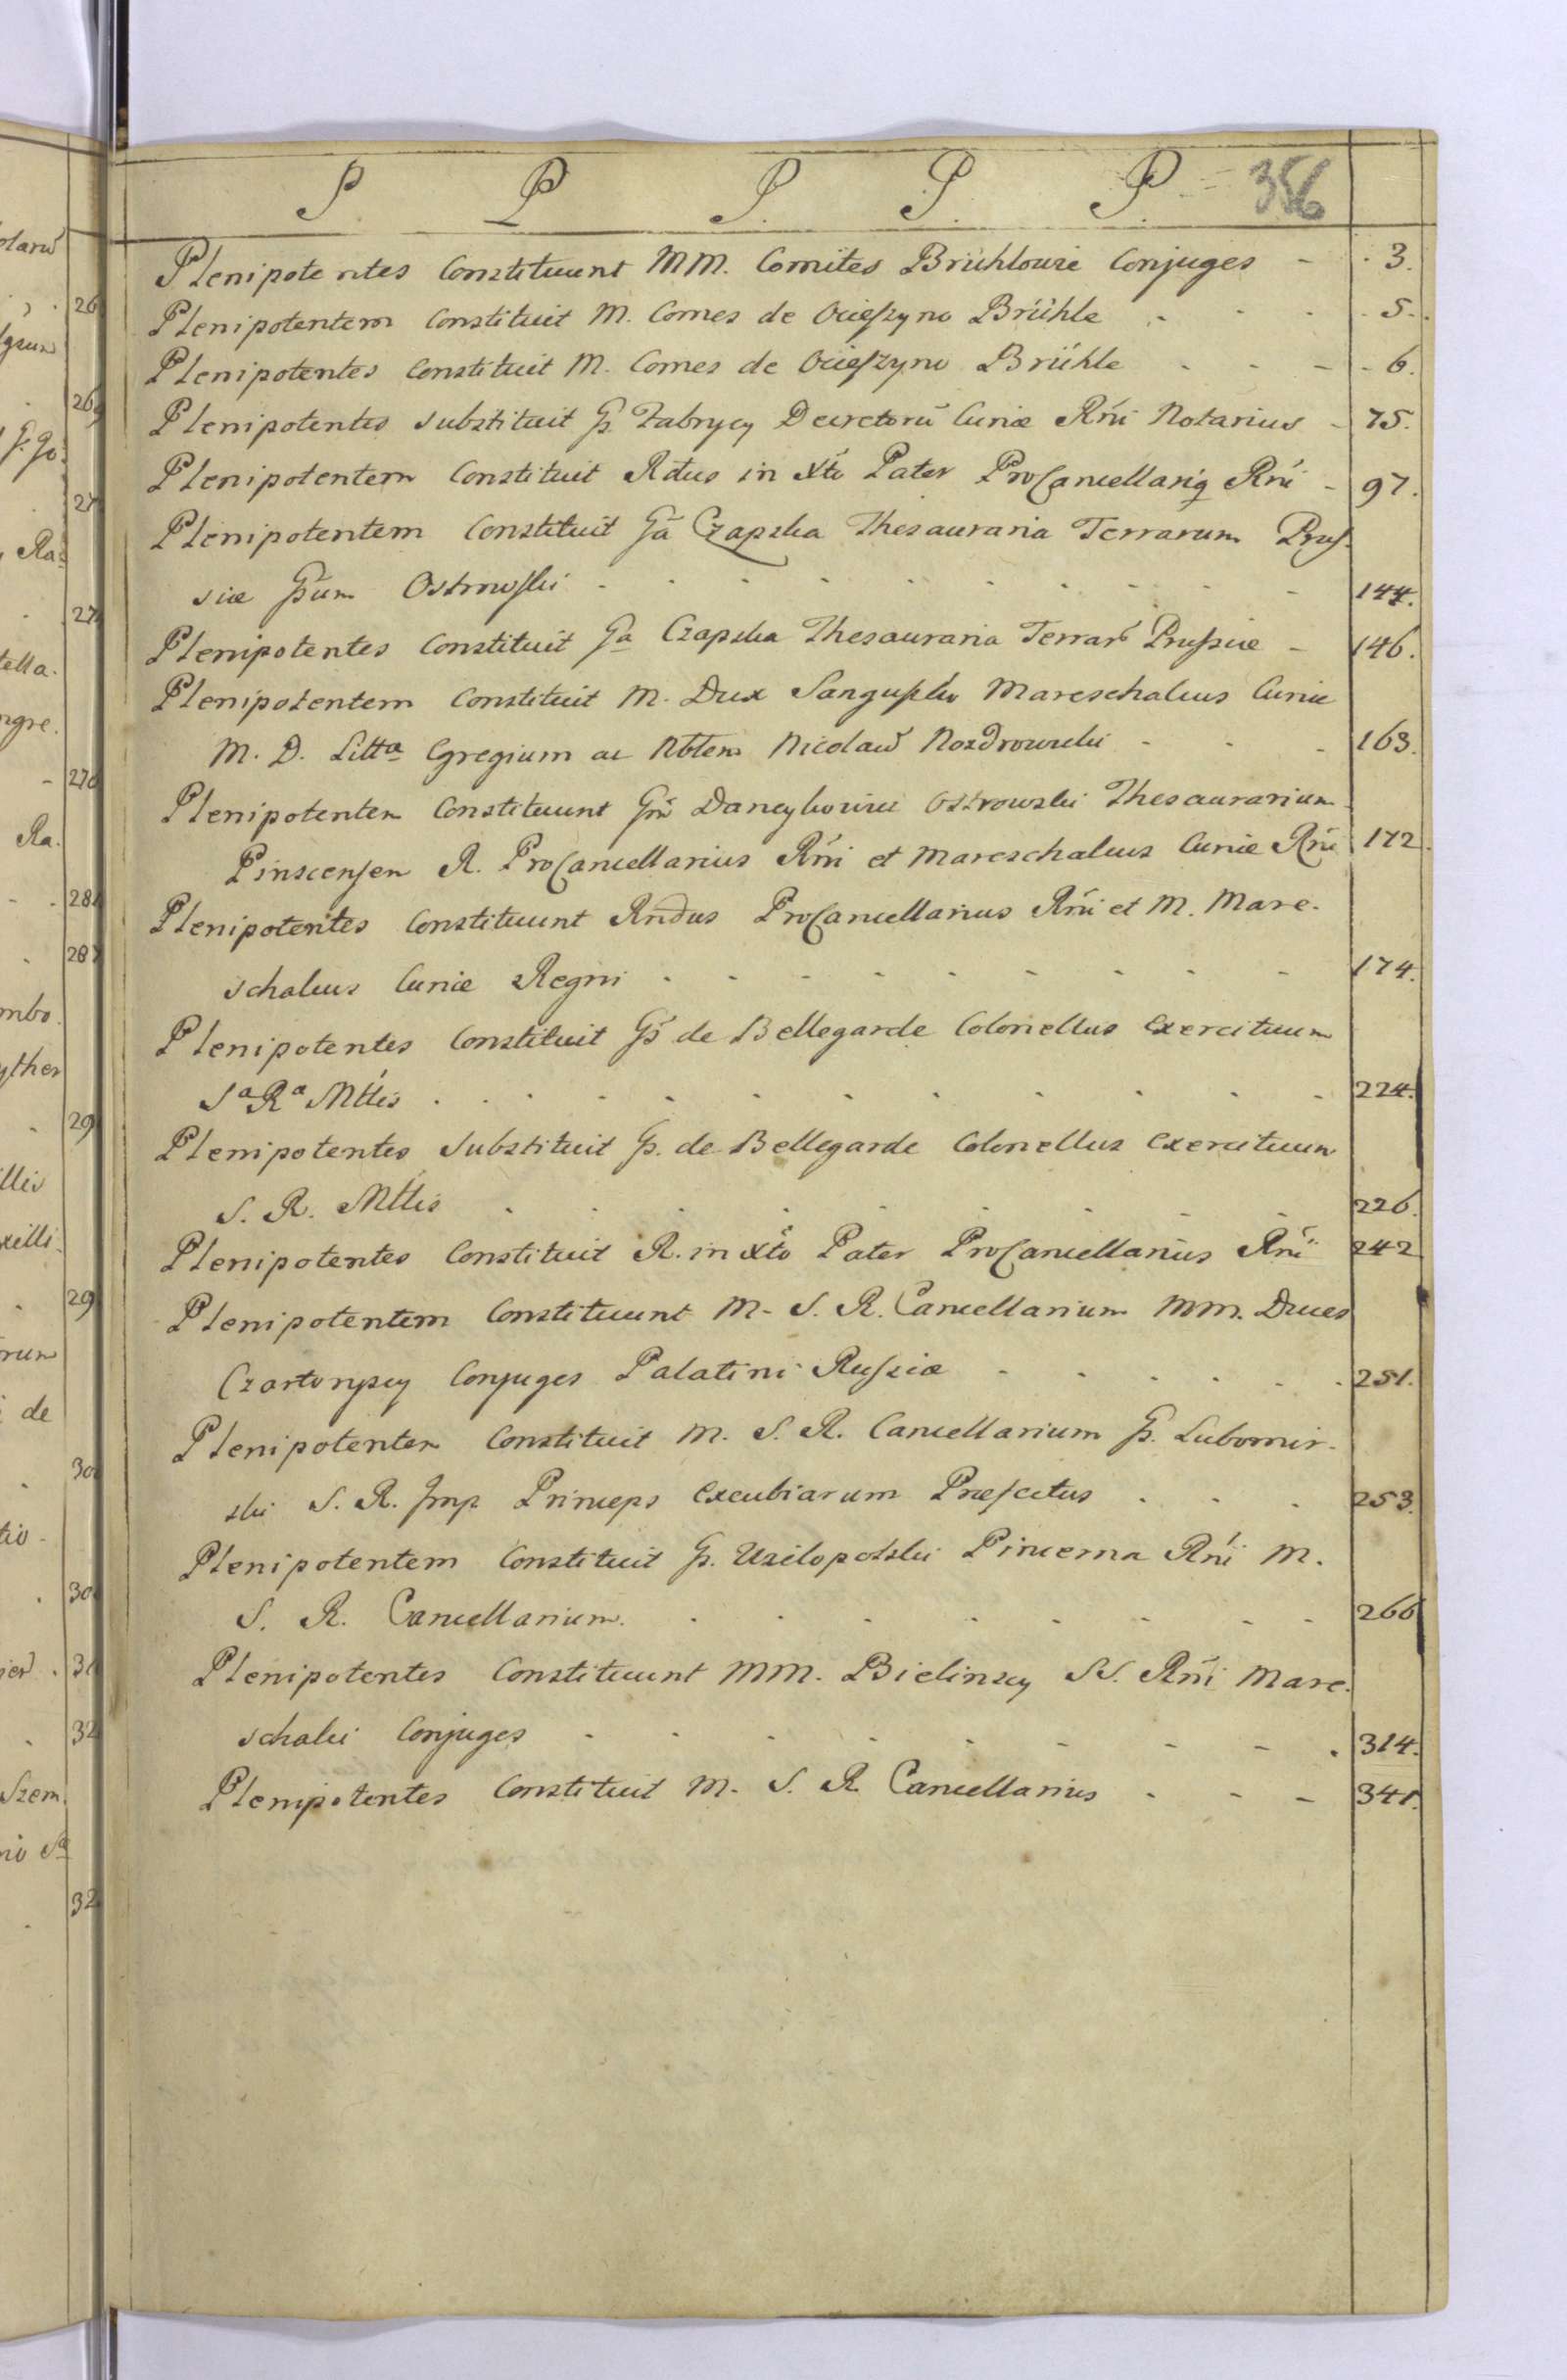 P P P. P. P. 356
Plenipotentes Constituunt MM. Comites Brühlowie Conjuges - 3.
Plenipotentem Constituit M. Comes de Ocieszyno Brühle - - - 5.
Plenipotentes Constituit M. Comes de Ocieszyno Brühle - - - 6.
Plenipotentes substituit G. Fabrycy Decretorū Curiæ Rńi Notarius - 75.
Plenipotentem Constituit Rdus in Xto Pater ProCancellariq Rńi - 97.
Plenipotentem Constituit Gā Czapska Thesauraria Terrarum Prus-
siæ Gsum Ostrowski - - - - - - - - 144.
Plenipotentes Constituit Ga Czapska Thesauraria Terrar Prussiæ - 146.
Plenipotentem Constituit M. Dux Sangusko Mareschalcus Curiæ
M. D. Litta Egregium ac Nbtem Nicolaū Nozdrowski - - - 163.
Plenipotentem Constituunt Gnī Daneykowicz Ostrowski Thesaurarium
Pinscensem R. ProCancellarius Rńi et Mareschalcus Curiæ Rńi 172.
Plenipotentes Constituunt Rndus ProCancellarius Rńi et M. Mare-
schalcus Curiæ Regni - - - - - - - - 174.
Plenipotentes Constituit Gs de Bellegarde Colonellus Exercituum
Sa Ra Mttis - - - - - - - - - - 224.
Plenipotentes Substituit Gs. de Bellegarde Colonellus Exercituum
S. R. Mttis - - - - - - - - - 226.
Plenipotentes Constituit R. in Xto Pater ProCancellarius Rńi 242
Plenipotentem Constituunt M. S. R. Cancellarium MM. Duces
Czartoryscy Conjuges Palatini Russiæ - - - - - - 251.
Plenipotentem Constituit M. S. R. Cancellarium Gs. Lubomir-
ski S. R. Imp Princeps Excubiarum Præfectus - - - 253.
Plenipotentem Constituit Gs. Wielopolski Pincerna Rńi M.
S. R. Cancellarium. - - - - - - - - 266
Plenipotentes Constituunt MM. Bielinscy SS. Rńi Mare-
schalci Conjuges - - - - - - - - - 314.
Plenipotentes Constituit M. S. R. Cancellarius - - - 341.